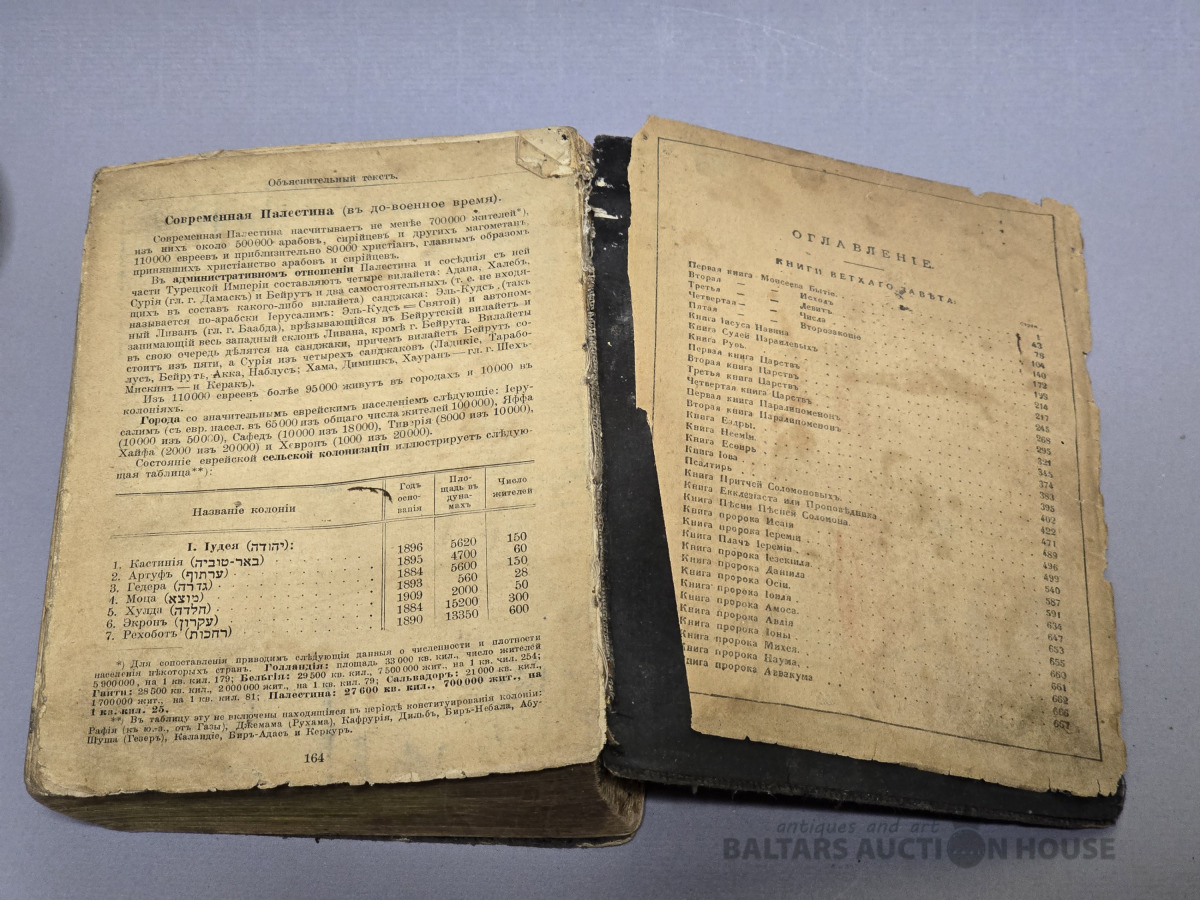 Объяснительный текстъ.
Современная Палестина (въ до-военное время).
Современная Палестина насчитываетъ не менѣе 700000 жителей*),
изъ нихъ около 500000 арабовъ, сирійцевъ и другихъ магометанъ,
110000 евреевъ и приблизительно 80000 христіанъ, главнымъ образомъ
принявшихъ христіанство арабовъ и сирійцевъ.
Въ административномъ отношеніи Палестина и сосѣднія съ ней
части Турецкой Имперіи составляютъ четыре вилайета: Адана, Халебъ,
Сурія (гл. г. Дамаскъ) и Бейрутъ и два самостоятельныхъ (т. е. не входя-
щихъ въ составъ какого-либо вилайета) санджака: Эль-Кудсъ (такъ
называется по-арабски Іерусалимъ: Эль-Кудсъ = Святой) и автоном-
ный Ливанъ (гл. г. Баабда), врѣзывающійся въ Бейрутскій вилайетъ и
занимающій весь западный склонъ Ливана, кромѣ г. Бейрута. Вилайеты
въ свою очередь дѣлятся на санджаки, причемъ вилайетъ Бейрутъ со-
стоитъ изъ пяти, а Сурія изъ четырехъ санджаковъ (Ладикіе, Тарабо-
лусъ, Бейрутъ, Акка, Наблусъ; Хама, Димишкъ, Хауранъ — гл. г. Шехъ-
Мискинъ — и Керакъ).
Изъ 110000 евреевъ болѣе 95000 живутъ въ городахъ и 10000 въ
колоніяхъ.
Города со значительнымъ еврейскимъ населеніемъ слѣдующіе: Іеру-
салимъ (съ евр. насел. въ 65000 изъ общаго числа жителей 100000), Яффа
(10000 изъ 50000), Сафедъ (10000 изъ 18000), Тиверія (8000 изъ 10000),
Хайфа (2000 изъ 20000) и Хевронъ (1000 изъ 20000).
Состояніе еврейской сельской колонизаціи иллюстрируетъ слѣдую-
щая таблица**):
Названіе колоніи Годъ осно-ванія Пло-щадь въ дуна-махъ Число жителей
I. Іудея (יהודה):
1. Кастинія (באר-טוביה) 1896 5620 150
2. Артуфъ (ערתוף) 1895 4700 60
3. Гедера (גדרה) 1884 5600 150
4. Моца (מוצא) 1893 560 28
5. Хулда (חלדה) 1909 2000 50
6. Экронъ (עקרון) 1884 15200 300
7. Рехоботъ (רחבות) 1890 13350 600
*) Для сопоставленія приводимъ слѣдующія данныя о численности и плотности
населенія нѣкоторыхъ странъ. Голландія: площадь 33000 кв. кил., число жителей
5900000, на 1 кв. кил. 179; Бельгія: 29500 кв. кил., 7500000 жит., на 1 кв. кил. 254;
Гаити: 28500 кв. кил., 2000000 жит., на 1 кв. кил. 79; Сальвадоръ: 21000 кв. кил.,
1700000 жит., на 1 кв. кил. 81; Палестина: 27600 кв. кил., 700000 жит., на
1 кв. кил. 25.
**) Въ таблицу эту не включены находящіяся въ періодѣ конституированія колоніи:
Рафія (къ ю.-з. отъ Газы), Джемама (Рухама), Кафрурія, Дильбъ, Биръ-Небала, Абу-
Шуша (Гезеръ), Каландіе, Биръ-Адасъ и Керкуръ.
164
ОГЛАВЛЕНІЕ.
КНИГИ ВЕТХАГО ЗАВѢТА.
Первая книга Моисеева Бытія 1
Вторая — — Исходъ 43
Третья — — Левитъ 78
Четвертая — — Числа 104
Пятая — — Второзаконіе 140
Книга Іисуса Навина 172
Книга Судей Израилевыхъ 193
Книга Руѳь 214
Первая книга Царствъ 217
Вторая книга Царствъ 245
Третья книга Царствъ 268
Четвертая книга Царствъ 295
Первая книга Паралипоменонъ 321
Вторая книга Паралипоменонъ 345
Книга Ездры 374
Книга Нееміи 383
Книга Есѳирь 395
Книга Іова 402
Псалтирь 422
Книга Притчей Соломоновыхъ 471
Книга Екклезіаста или Проповѣдника 489
Книга Пѣсни Пѣсней Соломона 496
Книга пророка Исаіи 499
Книга пророка Іереміи 540
Книга Плачъ Іереміи 587
Книга пророка Іезекіиля 591
Книга пророка Даніила 634
Книга пророка Осіи 647
Книга пророка Іоиля 653
Книга пророка Амоса 655
Книга пророка Авдія 660
Книга пророка Іоны 661
Книга пророка Михея 662
Книга пророка Наума 666
Книга пророка Аввакума 667
antiques and art
BALTARS AUCTION HOUSE